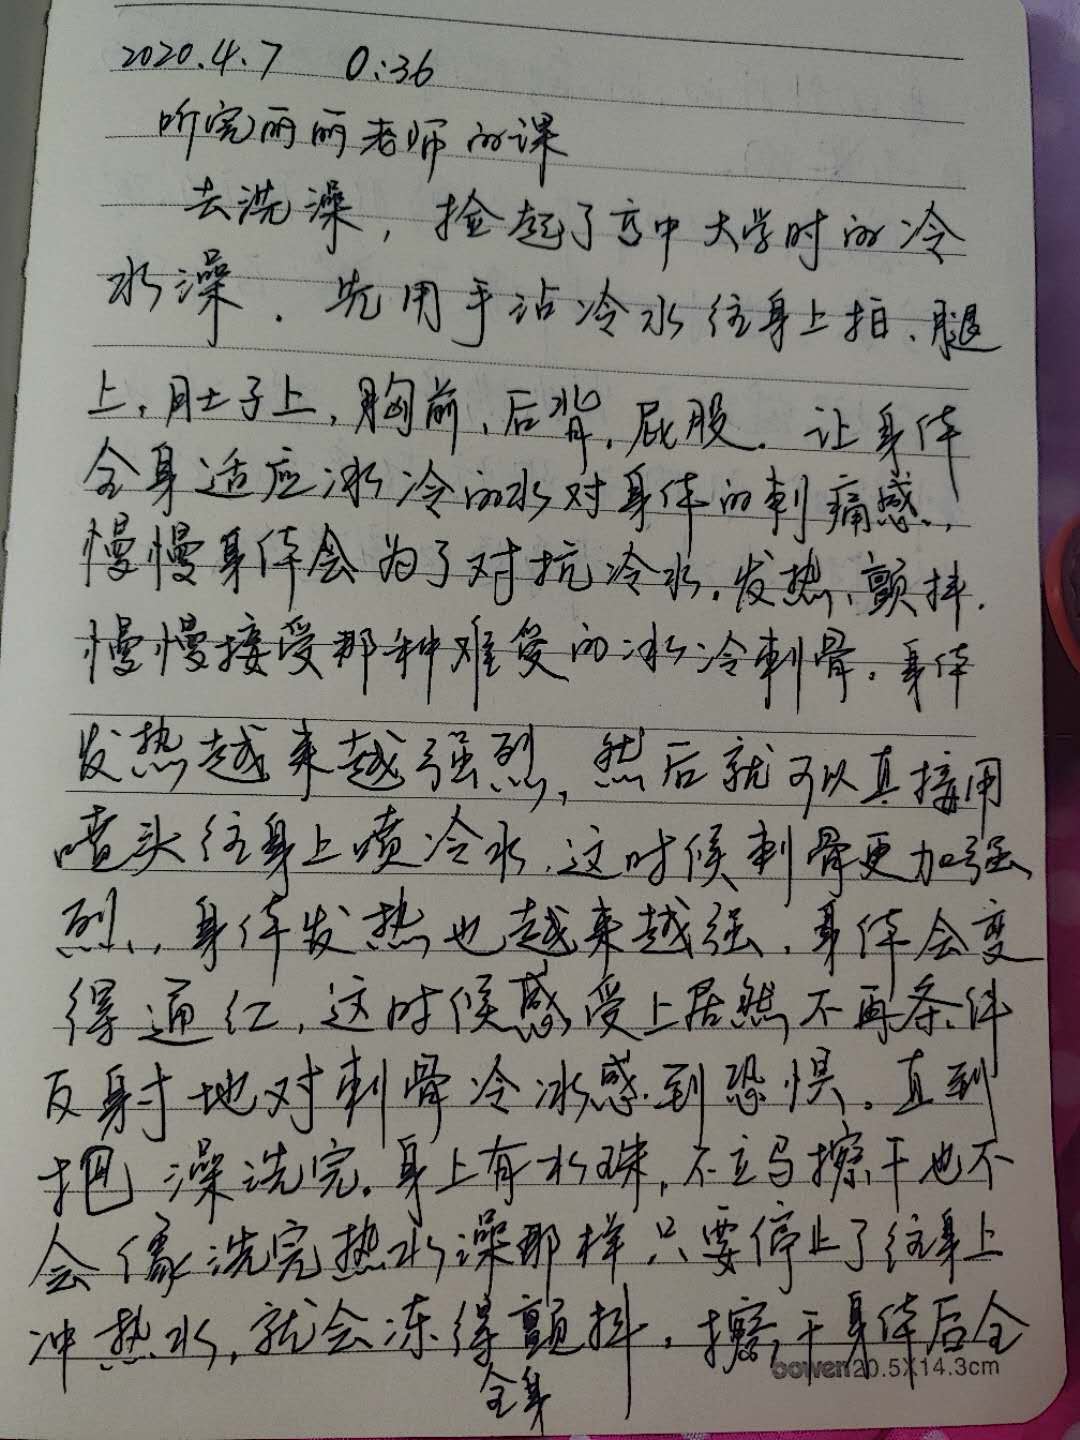 2020.4.7 0:36
听完丽丽老师的课
去洗澡，捡起了高中大学时的冷
水澡．先用手沾冷水往身上拍、腿
上，肚子上，胸前、后背，屁股．让身体
全身适应冰冷的水对身体的刺痛感，
慢慢身体会为了对抗冷水，发热、颤抖．
慢慢接受那种难受的冰冷刺骨。身体
发热越来越强烈，然后就可以直接用
喷头往身上喷冷水，这时候刺骨更加强
烈，身体发热也越来越强，身体会变
得通红，这时候感受上居然不再条件
反射地对刺骨冷冰感到恐惧。直到
把澡洗完。身上有水珠，不立马擦干也不
会像洗完热水澡那样只要停止了往身上
冲热水，就会冻得颤抖．擦干身体后全
全身
bowen 20.5X14.3cm